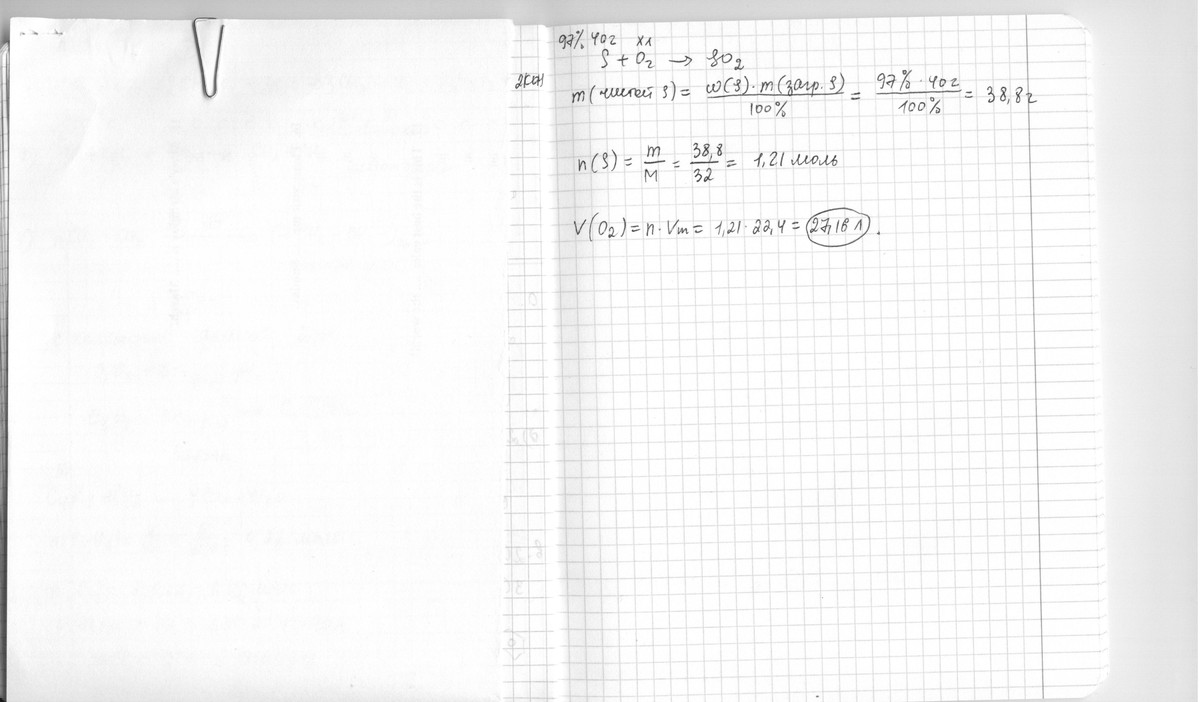 97% 40г хл
S + O₂ → SO₂
m(чистей S) = w(S)·m(загр. S) / 100% = 97%·40г / 100% = 38,8г
n(S) = m / M = 38,8 / 32 = 1,21 моль
V(O₂) = n·Vm = 1,21·22,4 = 27,16 л.